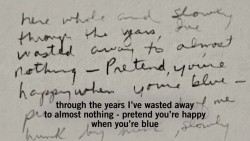 here whole and slowey
through the years, I've
wasted away to almost
nothing — Pretend, you're
happy when you're blue —
through the years I've wasted away
to almost nothing - pretend you're happy
when you're blue
me
slowly